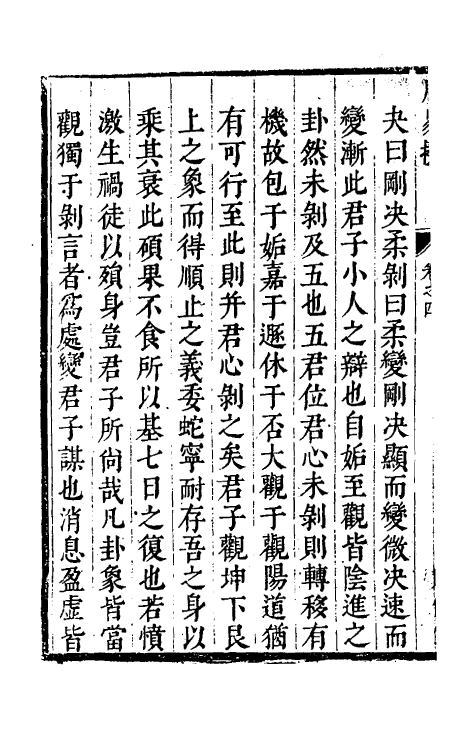 夬曰剛决柔剝曰柔變剛决顯而變微决速而
變漸此君子小人之辯也自姤至觀皆陰進之
卦然未剝及五也五君位君心未剝則轉移有
機故包于姤嘉于遯休于否大觀于觀陽道猶
有可行至此則并君心剝之矣君子觀坤下艮
上之象而得順止之義委蛇寧耐存吾之身以
乘其衰此碩果不食所以基七日之復也若憤
激生禍徒以殞身豈君子所尙哉凡卦象皆當
觀獨于剝言者爲處變君子謀也消息盈虛皆